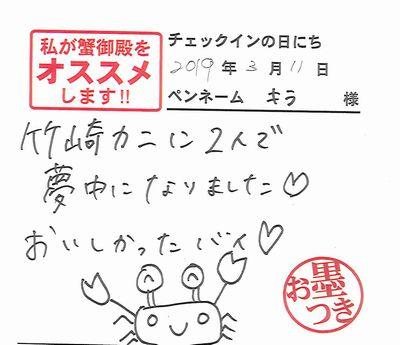 私が蟹御殿を
オススメ
します!!
チェックインの日にち
2019年3月11日
ペンネーム キラ 様
竹崎カニに2人で
夢中になりました♡
おいしかったバイ♡
お墨つき